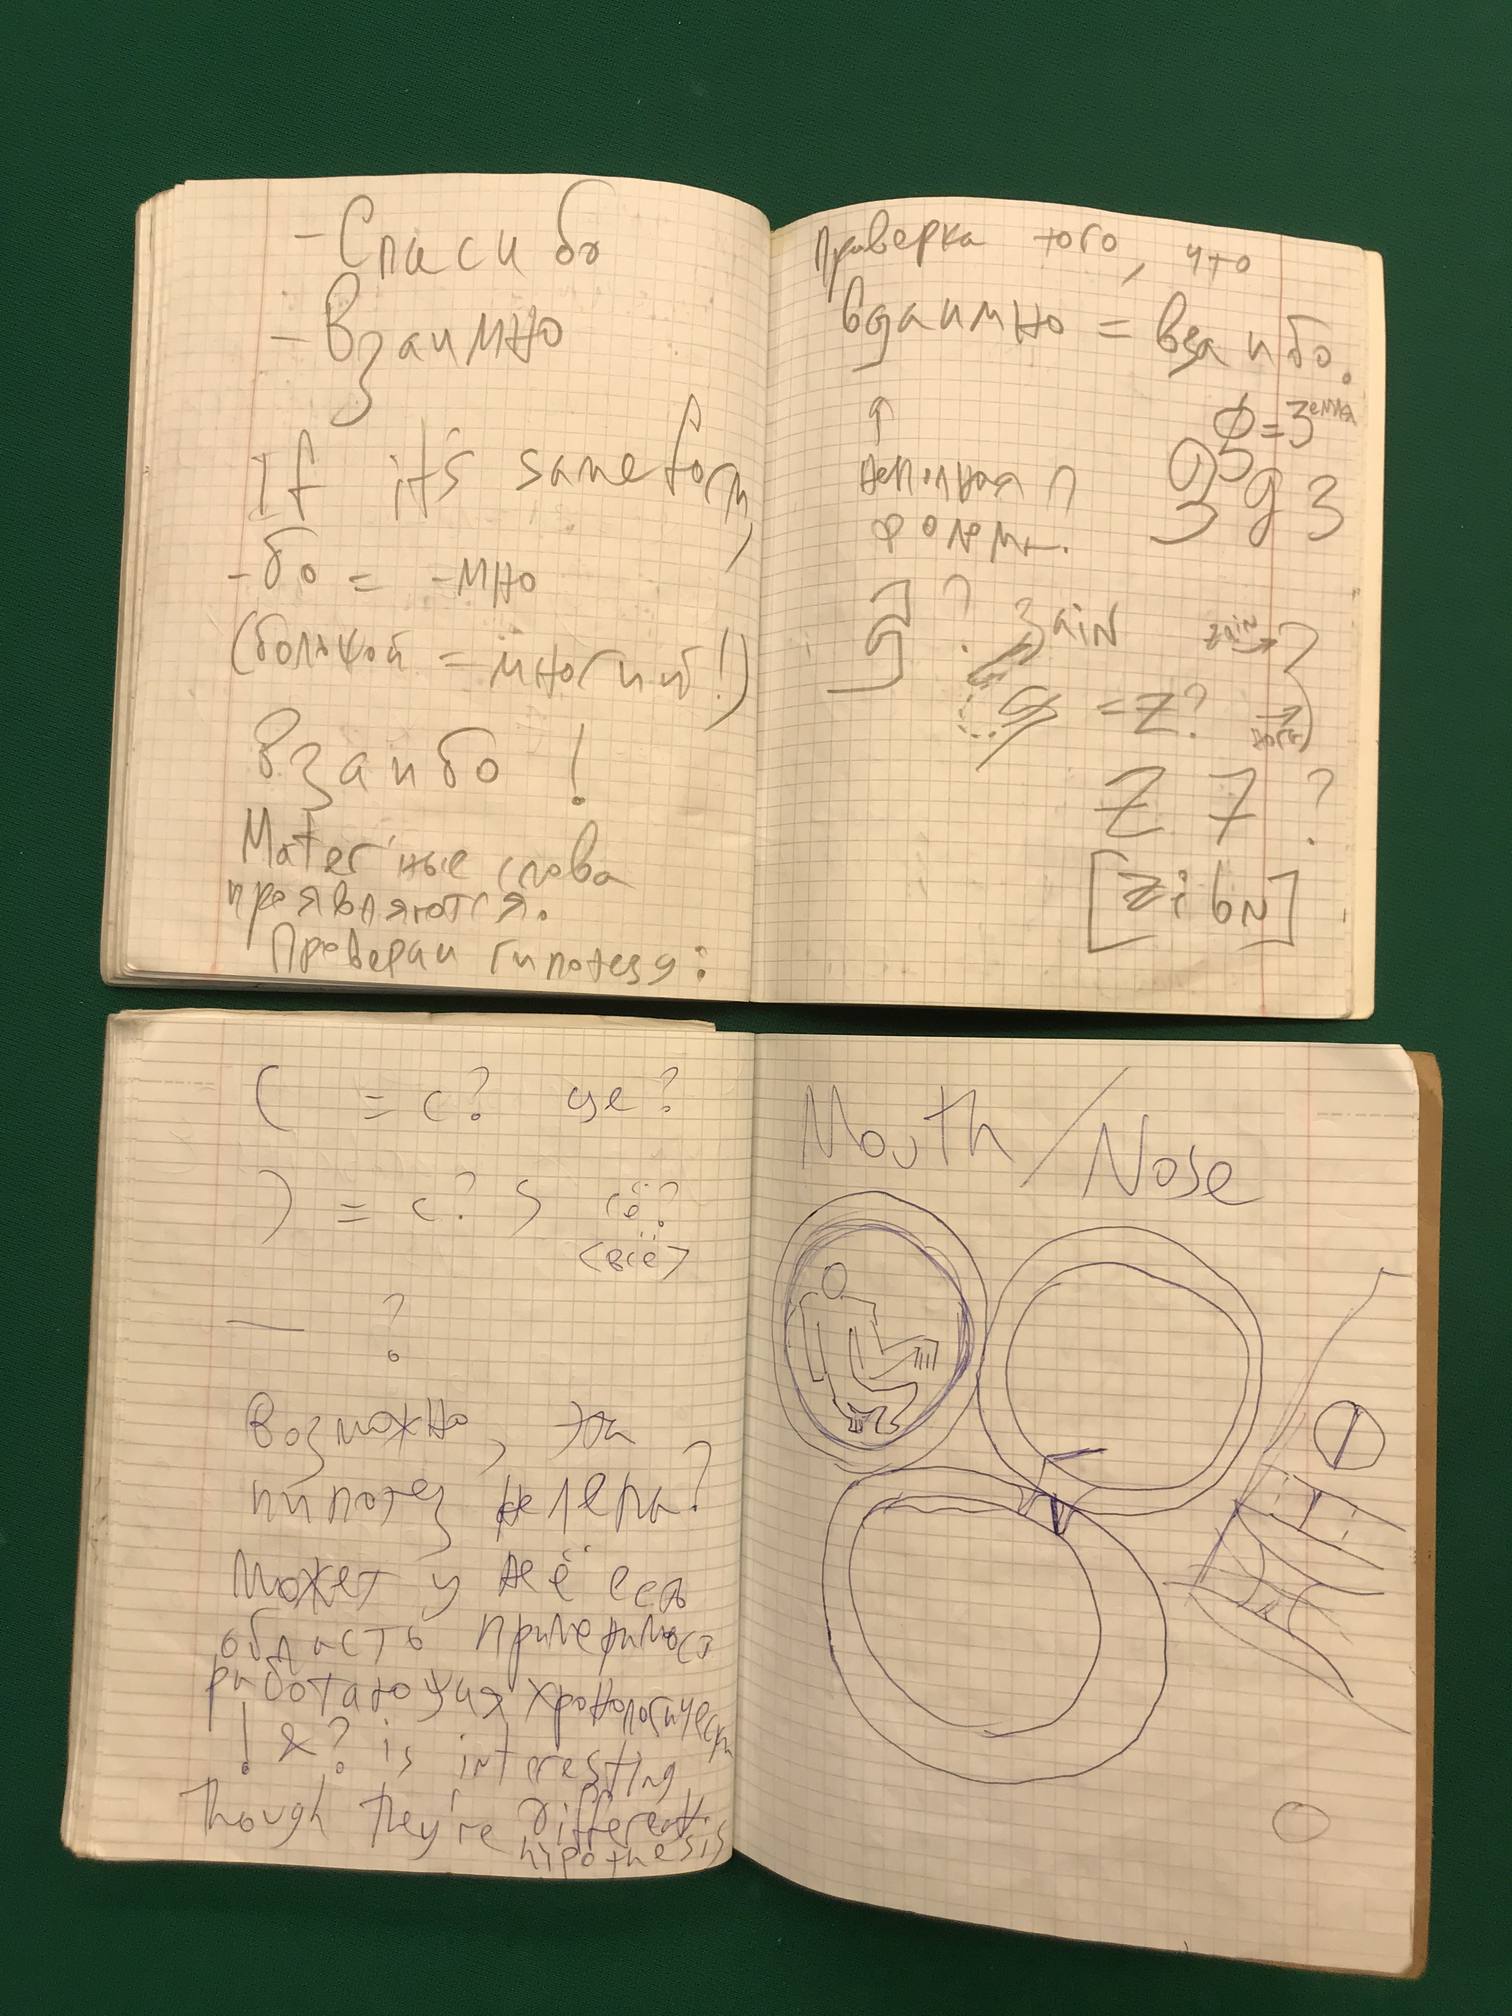 - Спасибо
- Взаимно
If it's same form,
-бо = -мно
(большой = многий!)
Взаибо!
Mater'ные слова
проявляются.
Проверяй гипотезу:
Проверка того, что
взаимно = взаибо.
↑
неполная
ф = Земля
з g 3
?
Zain
zain →
= Z?
Z 7 ?
[zibN]
( = c? це?
) = c? S сё?
(всё)
— ?
Возможно, эта
гипотез не верна?
Может у неё есть
область применимости
работающая хронологически
! & ? is interesting
Though they're different
hypothesis
Mouth / Nose